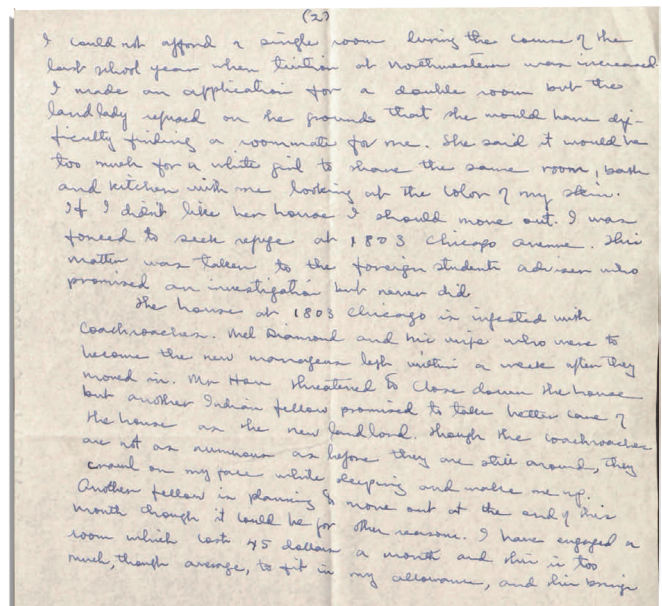 (2)
I could not afford a single room during the course of the
last school year when tuition at Northwestern was increased.
I made an application for a double room but the
landlady refused on the grounds that she would have dif-
ficulty finding a roommate for me. She said it would be
too much for a white girl to share the same room, bath
and kitchen with me looking at the color of my skin.
If I didn't like her house I should move out. I was
forced to seek refuge at 1803 Chicago avenue. This
matter was taken to the foreign students adviser who
promised an investigation but never did.
The house at 1803 Chicago is infested with
coachroaches. Mel Diamond and his wife who were to
become the new managers left within a week after they
moved in. Mr threatened to close down the house
but another Indian fellow promised to take better care of
the house as the new landlord. Though the coachroaches
are not as numerous as before they are still around, they
crawl on my face while sleeping and wake me up.
Another fellow is planning to move out at the end of this
month though it could be for other reasons. I have engaged a
room which costs 45 dollars a month and this is too
much, though average, to fit in my allowance, and this brings